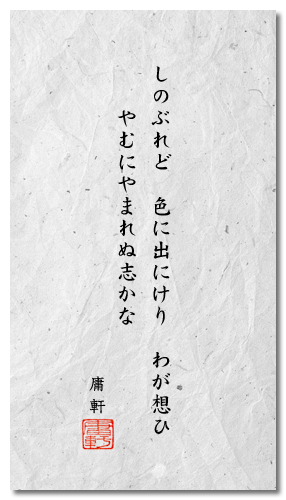 しのぶれど　色に出にけり　わが想ひ
やむにやまれぬ志かな
庸軒
庸軒